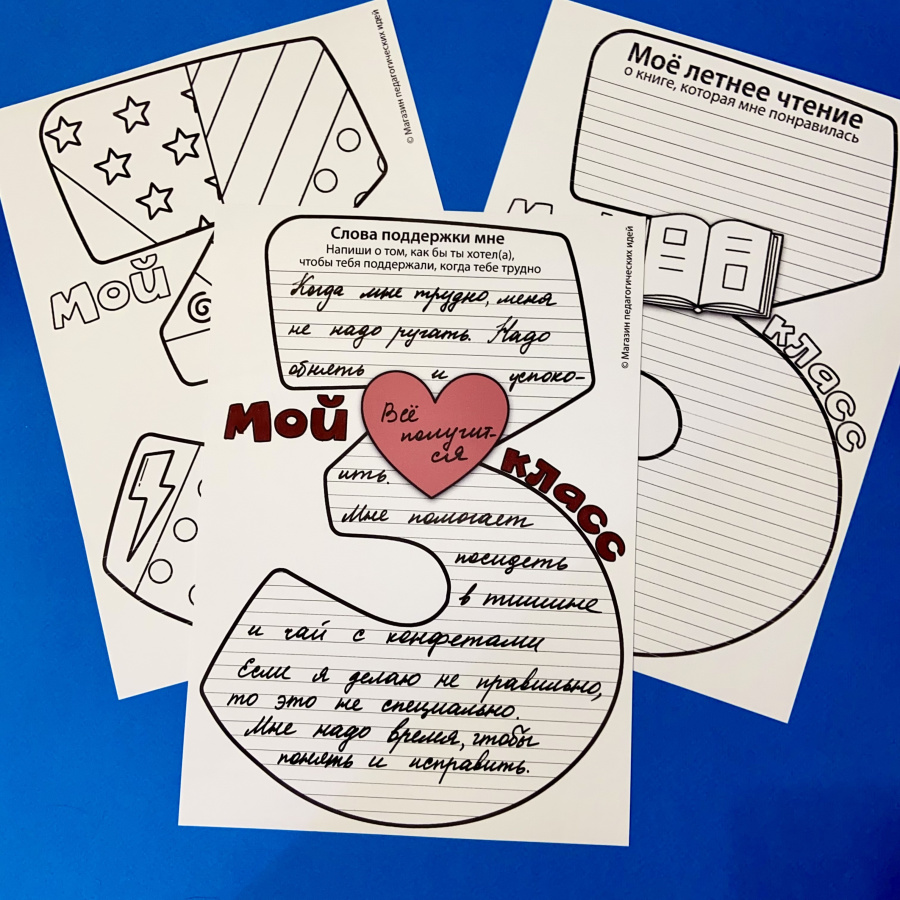 © Магазин педагогических идей
Мой
Моё летнее чтение
о книге, которая мне понравилась
класс
Слова поддержки мне
Напиши о том, как бы ты хотел(а),
чтобы тебя поддержали, когда тебе трудно
Когда мне трудно, меня
не надо ругать. Надо
обнять и успоко-
Мой
Всё
получит-
ся
класс
ить.
Мне помогает
посидеть
в тишине
и чай с конфетами
Если я делаю не правильно,
то это не специально.
Мне надо время, чтобы
понять и исправить.
© Магазин педагогических идей